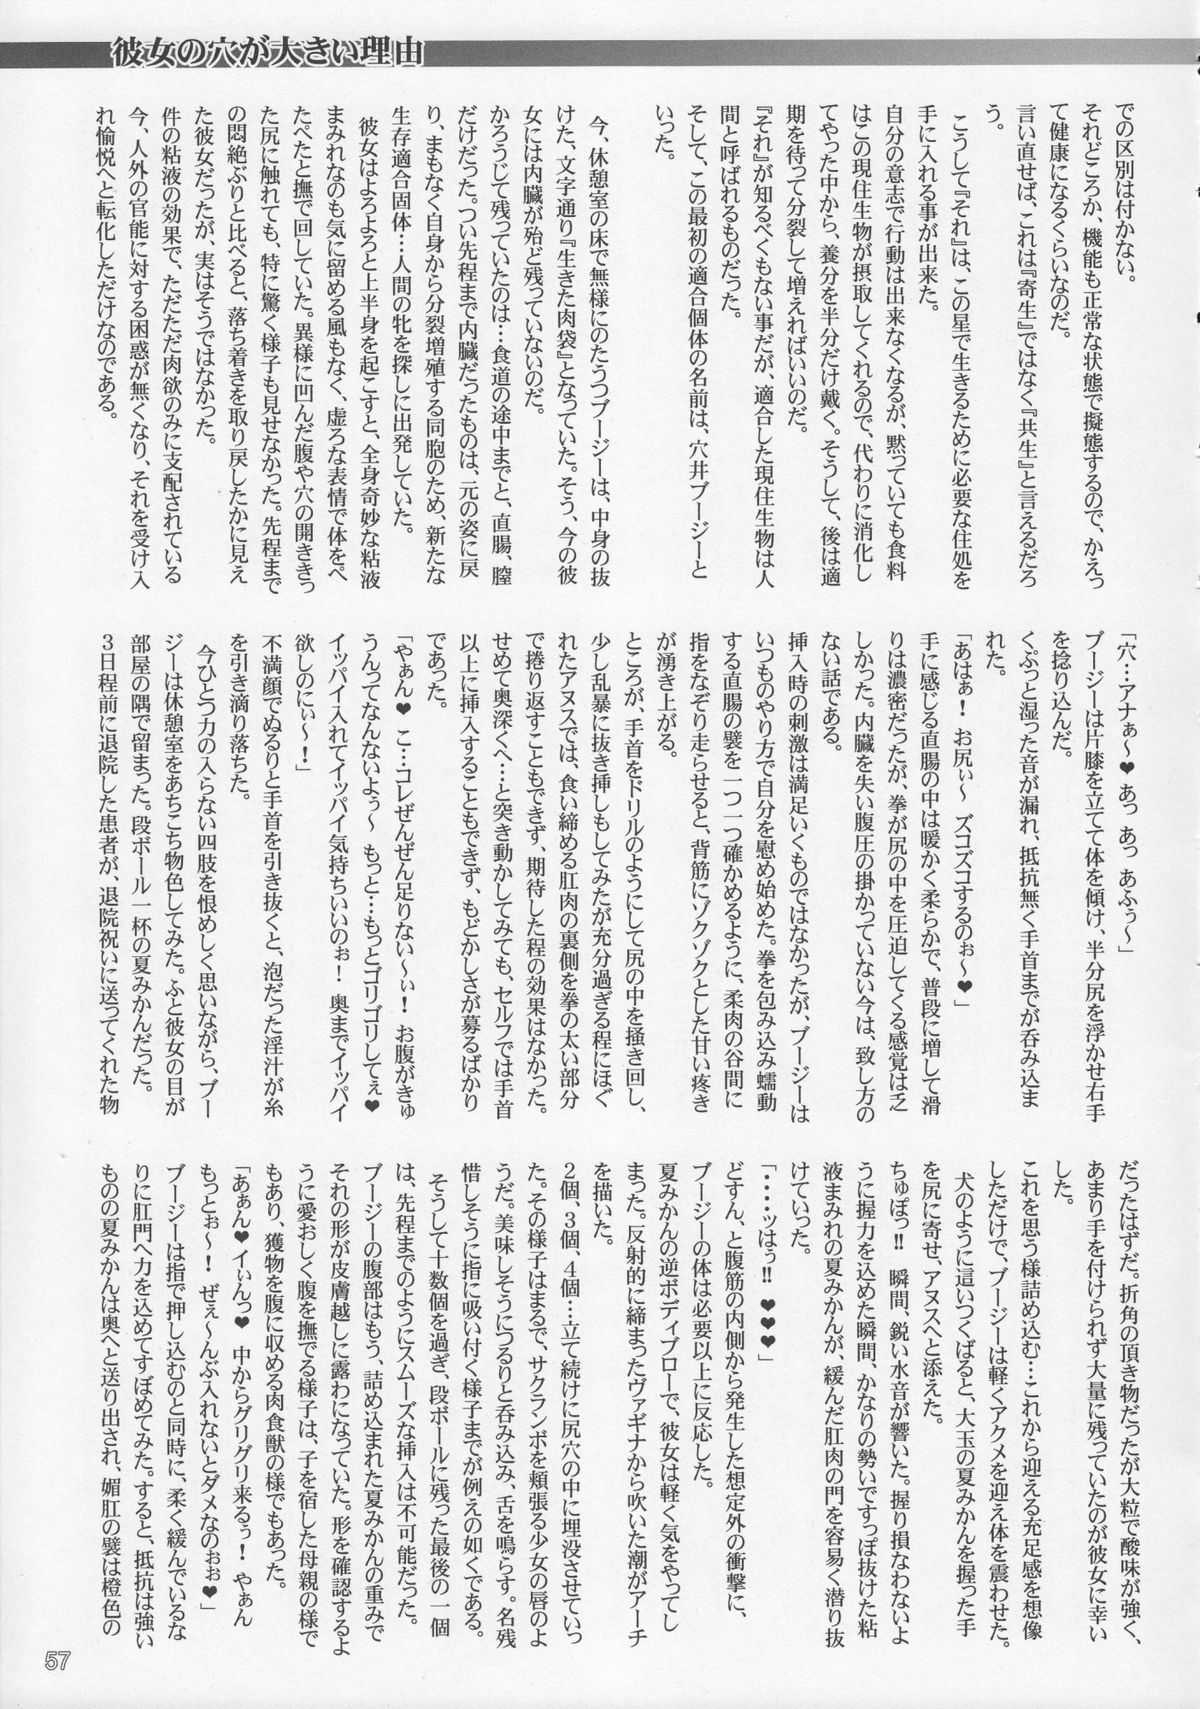 彼女の穴が大きい理由
での区別は付かない。
それどころか、機能も正常な状態で擬態するので、かえっ
て健康になるくらいなのだ。
言い直せば、これは『寄生』ではなく『共生』と言えるだろ
う。
こうして『それ』は、この星で生きるために必要な住処を
手に入れる事が出来た。
自分の意志で行動は出来なくなるが、黙っていても食料
はこの現住生物が摂取してくれるので、代わりに消化し
てやった中から、養分を半分だけ戴く。そうして、後は適
期を待って分裂して増えればいいのだ。
『それ』が知るべくもない事だが、適合した現住生物は人
間と呼ばれるものだった。
そして、この最初の適合個体の名前は、穴井ブージーと
いった。
今、休憩室の床で無様にのたうつブージーは、中身の抜
けた、文字通り『生きた肉袋』となっていた。そう、今の彼
女には内臓が殆ど残っていないのだ。
かろうじて残っていたのは…食道の途中までと、直腸、膣
だけだった。つい先程まで内臓だったものは、元の姿に戻
り、まもなく自身から分裂増殖する同胞のため、新たな
生存適合固体…人間の牝を探しに出発していた。
彼女はよろよろと上半身を起こすと、全身奇妙な粘液
まみれなのも気に留める風もなく、虚ろな表情で体をペ
たぺたと撫で回していた。異様に凹んだ腹や穴の開ききっ
た尻に触れても、特に驚く様子も見せなかった。先程まで
の悶絶ぶりと比べると、落ち着きを取り戻したかに見え
た彼女だったが、実はそうではなかった。
件の粘液の効果で、ただただ肉欲のみに支配されている
今、人外の官能に対する困惑が無くなり、それを受け入
れ愉悦へと転化しただけなのである。
「穴…アナぁ～❤ あっ あっ あふぅ～」
ブージーは片膝を立てて体を傾け、半分尻を浮かせ右手
を捻り込んだ。
くぷっと湿った音が漏れ、抵抗無く手首までが呑み込ま
れた。
「あはぁ！ お尻ぃ～ ズコズコするのぉ～❤」
手に感じる直腸の中は暖かく柔らかで、普段に増して滑
りは濃密だったが、拳が尻の中を圧迫してくる感覚は乏
しかった。内臓を失い腹圧の掛かっていない今は、致し方の
ない話である。
挿入時の刺激は満足いくものではなかったが、ブージーは
いつものやり方で自分を慰め始めた。拳を包み込み蠕動
する直腸の襞を一つ一つ確かめるように、柔肉の谷間に
指をなぞり走らせると、背筋にゾクゾクとした甘い疼き
が湧き上がる。
ところが、手首をドリルのようにして尻の中を掻き回し、
少し乱暴に抜き挿しもしてみたが充分過ぎる程にほぐ
れたアヌスでは、食い締める肛肉の裏側を拳の太い部分
で捲り返すこともできず、期待した程の効果はなかった。
せめて奥深くへ…と突き動かしてみても、セルフでは手首
以上に挿入することもできず、もどかしさが募るばかり
であった。
「やぁん❤ こ…コレぜんぜん足りない～ぃ！ お腹がきゅ
うんってなんないよぅ～ もっと…もっとゴリゴリしてぇ❤
イッパイ入れてイッパイ気持ちいいのぉ！ 奥までイッパイ
欲しのにぃ～！」
不満顔でぬるりと手首を引き抜くと、泡だった淫汁が糸
を引き滴り落ちた。
今ひとつ力の入らない四肢を恨めしく思いながら、ブー
ジーは休憩室をあちこち物色してみた。ふと彼女の目が
部屋の隅で留まった。段ボール一杯の夏みかんだった。
３日程前に退院した患者が、退院祝いに送ってくれた物
だったはずだ。折角の頂き物だったが大粒で酸味が強く、
あまり手を付けられず大量に残っていたのが彼女に幸い
した。
これを思う様詰め込む…これから迎える充足感を想像
しただけで、ブージーは軽くアクメを迎え体を震わせた。
犬のように這いつくばると、大玉の夏みかんを握った手
を尻に寄せ、アヌスへと添えた。
ちゅぽっ‼ 瞬間、鋭い水音が響いた。握り損なわないよ
うに握力を込めた瞬間、かなりの勢いですっぽ抜けた粘
液まみれの夏みかんが、緩んだ肛肉の門を容易く潜り抜
けていった。
「・・・・ッはぅ‼ ❤❤❤」
どすん、と腹筋の内側から発生した想定外の衝撃に、
ブージーの体は必要以上に反応した。
夏みかんの逆ボディブローで、彼女は軽く気をやってし
まった。反射的に締まったヴァギナから吹いた潮がアーチ
を描いた。
２個、３個、４個…立て続けに尻穴の中に埋没させていっ
た。その様子はまるで、サクランボを頬張る少女の唇のよ
うだ。美味しそうにつるりと呑み込み、舌を鳴らす。名残
惜しそうに指に吸い付く様子までが例えの如くである。
そうして十数個を過ぎ、段ボールに残った最後の一個
は、先程までのようにスムーズな挿入は不可能だった。
ブージーの腹部はもう、詰め込まれた夏みかんの重みで
それの形が皮膚越しに露わになっていた。形を確認するよ
うに愛おしく腹を撫でる様子は、子を宿した母親の様で
もあり、獲物を腹に収める肉食獣の様でもあった。
「あぁん❤イぃんっ❤ 中からグリグリ来るぅ！ やぁん
もっとぉ～！ ぜぇ～んぶ入れないとダメなのぉぉ❤」
ブージーは指で押し込むのと同時に、柔く緩んでいるな
りに肛門へ力を込めてすぼめてみた。すると、抵抗は強い
ものの夏みかんは奥へと送り出され、媚肛の襞は橙色の
57